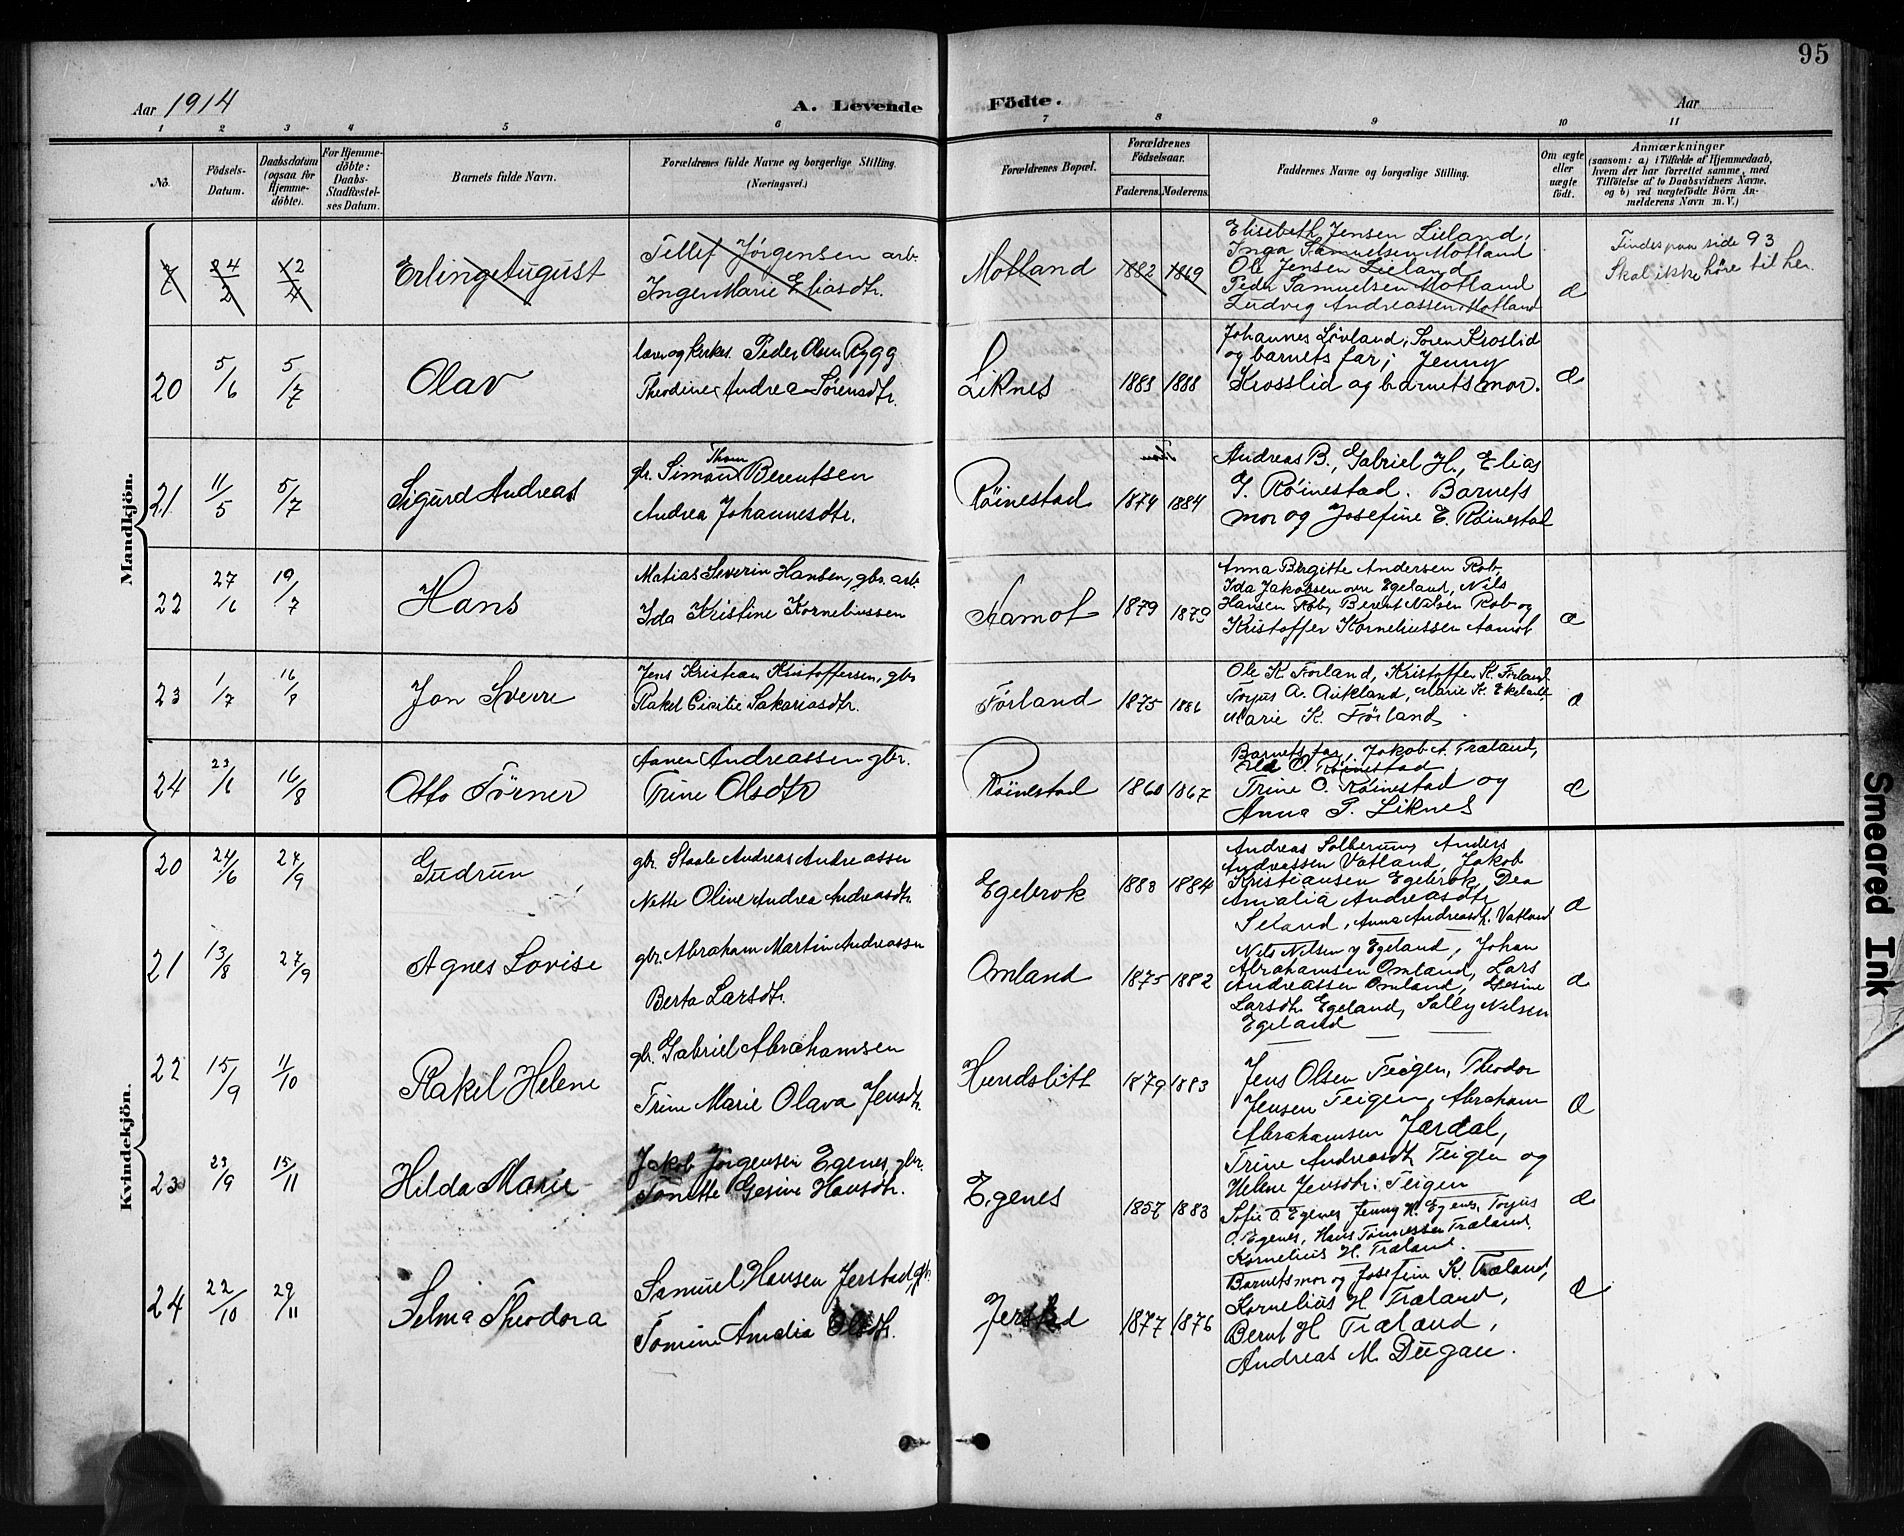 95
Aar 1914
A. Levende Födte.
Aar
1 2 3 4 5 6 7 8 9 10 11
No.
Födsels-Datum.
Daabsdatum (ogsaa for Hjemme-döbte).
For Hjemme-döbte: Daabs-Stadfæstel-ses Datum.
Barnets fulde Navn.
Forældrenes fulde Navne og borgerlige Stilling. (Næringsvei.)
Forældrenes Bopæl.
Forældrenes Födselsaar.
Faderens. Moderens.
Faddernes Navne og borgerlige Stilling.
Om ægte eller uægte födt.
Anmærkninger
(saasom: a) i Tilfælde af Hjemmedaab,
hvem der har forrettet samme, med
Tilföielse af to Daabsvidners Navne,
og b) ved uægtefödte Börn An-
melderens Navn m. V.)
Mandkjön.
24/2 12/4 Erling August
Tellef Jørgensen arb.
Inger Marie Eliasdtr.
Motland 1882 1869
Elisebeth Jensen Lieland,
Inga Samuelsen Motland
Ole Jensen Lieland
Peder Samuelsen Motland
Ludvig Andreassen Motland
æ
Findes paa side 93
Skal ikke høre til her.
20 5/6 5/7 Olav
lærer og kirkes. Peder Olsen Rygg
Theodine Andrea Sørensdtr.
Liknes 1883 1888
Johannes Løvland, Søren Kroslid
og barnets far; Jenny
Krosslid og barnets mor.
æ
21 11/5 5/7 Sigurd Andreas
Thom
gbr. Simon Berentsen
Andrea Johannesdtr.
Røinestad 1874 1884
Andreas B., Gabriel H., Elias
G. Røinestad. Barnets
mor og Josefine E. Røinestad
22 27/6 19/7 Hans
Matias Severin Hansen, gbr. arb.
Ida Kristine Korneliussen
Aamot 1879 1879
Anna Birgitte Andersen Rob,
Ida Jakobsen øvre Egeland, Nils
Hansen Rob, Berent Nilsen Rob og
Kristoffer Korneliussen Aamot
æ
23 1/7 16/8 Jon Sverre
Jens Kristian Kristoffersen, gbr
Rakel Cicilie Sakariasdtr.
Førland 1875 1886
Ole K. Førland, Kristoffer K. Førland
Torjus A. Aukland, Marie K. Ekeland
Marie K. Førland.
æ
24 23/6 16/8 Otto Tørner
Aanen Andreassen gbr.
Trine Olsdtr
Røinestad 1860 1867
Barnets far, Jakob A. Træland,
O. Røinestad
Trine O. Røinestad og
Anna P. Liknes
æ
Kvindekjön.
20 24/6 27/9 Gudrun
gbr. Staale Andreas Andreassen
Nette Oline Andrea Andreasdtr.
Egebrok 1883 1884
Andreas Solberum, Anders
Andreassen Vatland, Jakob
Kristiansen Egebrok, Dea
Amalia Andreasdtr
Seland, Anna Andreasdt. Vatland
æ
21 13/8 27/9 Agnes Lovise
gbr. Abraham Martin Andreassen
Berta Larsdtr.
Omland 1875 1882
Nils Nilsen y Egeland, Johan
Abrahamsen Omland, Lars
Andreassen Omland, Gesine
Larsdtr. Egeland, Sally Nilsen
Egeland
æ
22 15/9 11/10 Rakel Helene
gbr. Gabriel Abrahamsen
Trine Marie Olava Jensdtr.
Hundsbith 1879 1883
Jens Olsen Teigen, Theodor
Jensen Teigen, Abraham
Abrahamsen Jærdal,
Trine Andreasdt. Teigen og
Helene Jensdtr. Teigen
æ
23 23/9 15/11 Hilda Marie
Jakob Jørgensen Egenes, gbr.
Tonette Gesine Hansdtr.
Egenes 1857 1883
Sofie O. Egenes, Jenny H. Egenes, Torjus
O. Egenes, Hans Tønnessen Træland,
Kornelius H. Træland.
æ
24 22/10 29/11 Selma Theodora
Samuel Hansen Jerstad, gbr.
Tomine Amalia Olsdtr.
Jerstad 1877 1876
Barnets mor og Josefine K. Træland,
Kornelius H. Træland,
Bernt H Træland,
Andreas M. Dugan.
æ
Smeared Ink